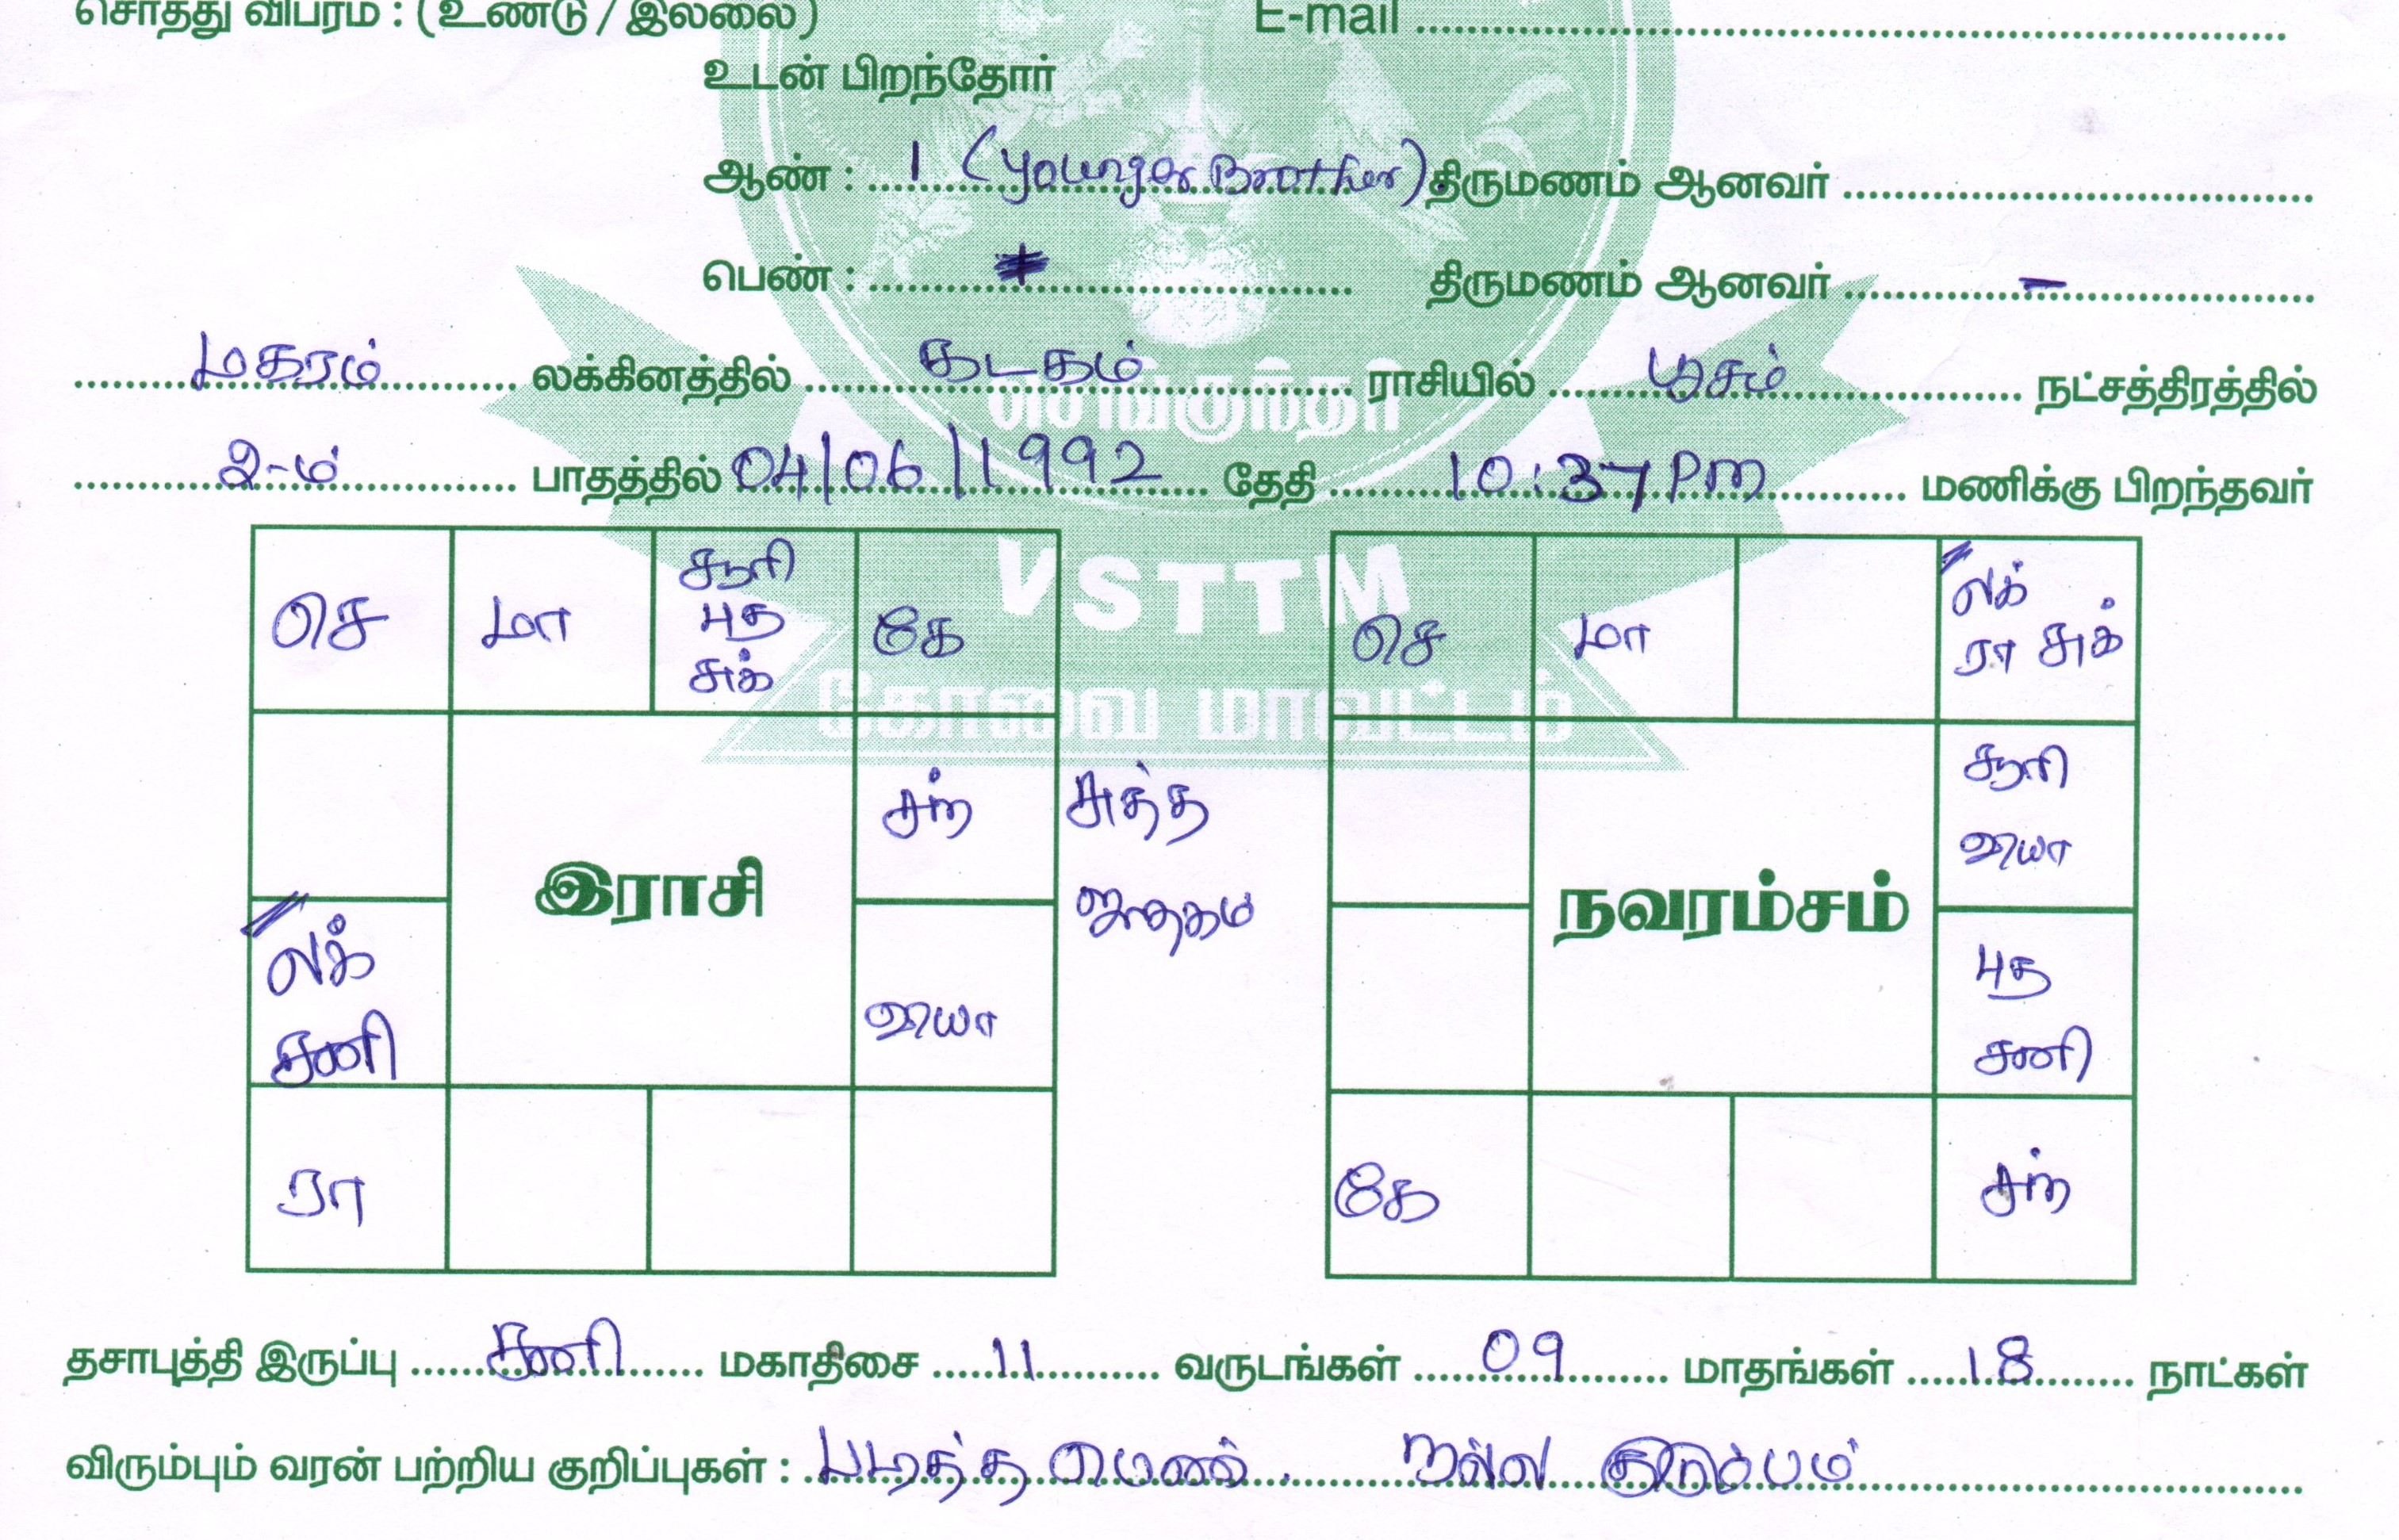 சொத்து விபரம் : (உண்டு / இல்லை) E-mail
உடன் பிறந்தோர்
ஆண் : 1 (Younger Brother) திருமணம் ஆனவர்
பெண் : திருமணம் ஆனவர் -
மகரம் லக்கினத்தில் கடகம் ராசியில் பூசம் நட்சத்திரத்தில்
2-ம் பாதத்தில் 04/06/1992 தேதி 10:37 PM மணிக்கு பிறந்தவர்
செங்குந்தர்
VSTTM
கோவை மாவட்டம்
செ மா சூரி புத சுக் கே
சந் சுத்த ஜாதகம்
இராசி
லக் சனி வியா
ரா
செ மா லக் ரா சுக்
சூரி வியா
நவரம்சம்
புத சனி
கே சந்
தசாபுத்தி இருப்பு சனி மகாதிசை 11 வருடங்கள் 09 மாதங்கள் 18 நாட்கள்
விரும்பும் வரன் பற்றிய குறிப்புகள் : படித்த பெண். நல்ல குடும்பம்